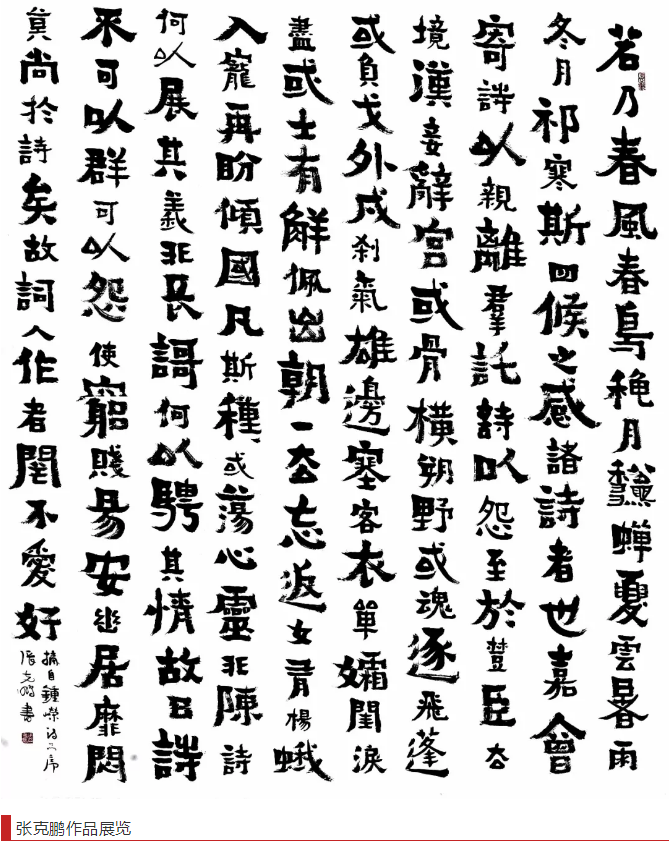 若乃春風春鳥穐月龝蝉夏雲暑雨
冬月祁寒斯四候之感諸詩者也嘉會
寄詩以親離羣託詩以怨至於楚臣去
境漢妾辭宮或骨橫朔野或魂逐飛蓬
或負戈外戍刹氣雄邊塞客衣單孀閨淚
盡或士有解佩出朝一去忘返女有楊蛾
入寵再盼傾國凡斯種或蕩心靈非陳詩
何以展其義非長謌何以騁其情故曰詩
來可以群可以怨使窮賤易安幽居靡悶
莫尚於詩矣故詞人作者罔不愛好
摘自鍾嶸詩之序
張克鹏書
张克鹏作品展览